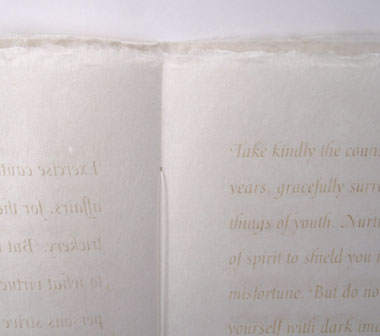 Exercise cauti
affairs, for the
trickery. But
to what virtue
persons strive
Take kindly the couns
years, gracefully surre
things of youth. Nurtu
of spirit to shield you i
misfortune. But do no
yourself with dark ima